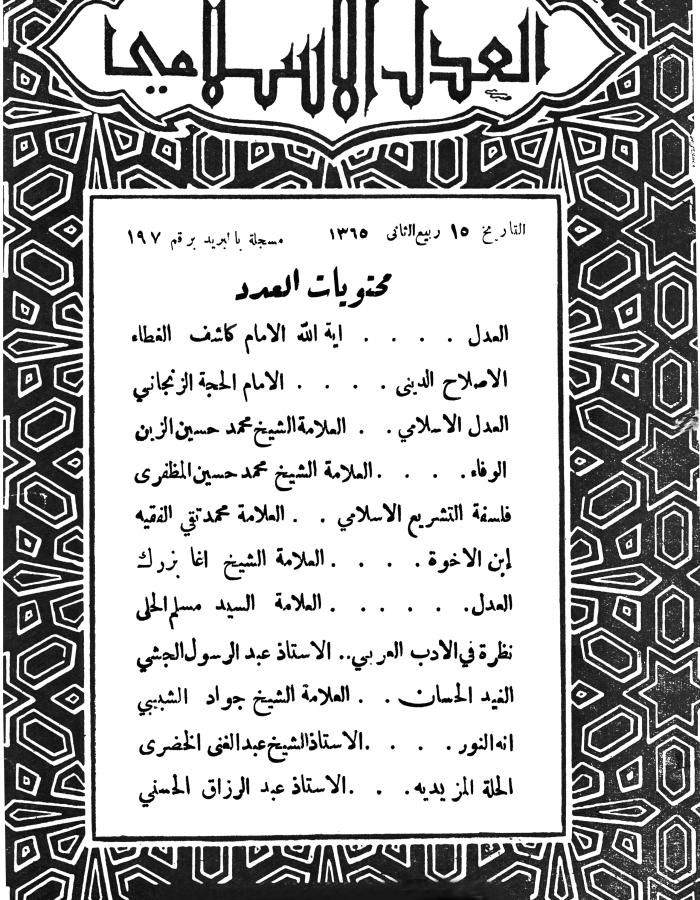 العدل الاسلامي
التاريخ ١٥ ربيع الثانى ١٣٦٥ مسجلة بالبريد برقم ١٩٧
محتويات العدد
العدل . . . . اية الله الامام كاشف الغطاء
الاصلاح الدينى . . . . الامام الحجة الزنجاني
العدل الاسلامي . . العلامة الشيخ محمد حسين الزين
الوفاء . . . . العلامة الشيخ محمد حسين المظفرى
فلسفة التشريع الاسلامي . . العلامة محمد تقي الفقيه
إبن الاخوة . . . . العلامة الشيخ اغا بزرك
العدل . . . . . العلامة السيد مسلم الحلى
نظرة في الادب العربي .. الاستاذ عبد الرسول الجشي
الغيد الحسان . . العلامة الشيخ جواد الشبيبي
انه النور . . . . الاستاذ الشيخ عبد الغنى الخضرى
الحلة المزيديه . . . الاستاذ عبد الرزاق الحسني